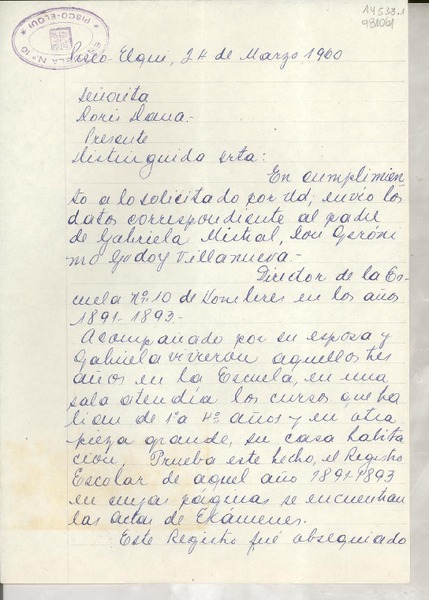 14533.1
981061
PISCO-ELQUI
Pisco-Elqui, 24 de Marzo 1960
Señorita
Doris Dana.-
Presente
Distinguida srta:
En cumplimien-
to a lo solicitado por Ud; envío los
datos correspondiente al padre
de Gabriela Mistral, Don Geróni
mo Godoy Villanueva.-
Director de la Es-
cuela Nº 10 de Hombres en los años
1891-1893.-
Acompañado por su esposa y
Gabriela vivieron aquellos tres
años en la Escuela, en una
sala atendía los cursos que ha
bían de 1º a 4º años y en otra
pieza grande, su casa habita
ción. Prueba este hecho, el Registro
Escolar de aquel año 1891-1893
en cuyas páginas se encuentran
las actas de Exámenes.
Este Registro fué obsequiado